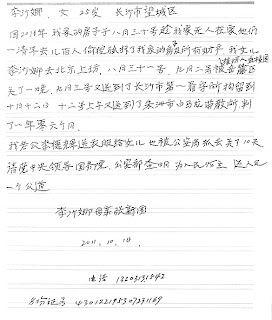 李沙娜、女 25岁 长沙市望城区
因2011年 我家的房子于八月三十号趁我家无人在家他们
一清早无几百人偷抢强拆了我家的房屋所有财产 我女儿
李沙娜去北京上访、八月三十一号、九月二号被岳麓区
关了一晚、九月三号又送到了长沙市第一看守所拘留到
十月十二日 十二号上午又送到了株洲市白马垅劳教所判
了一年零六个月.
我老公李耀辉送衣服给女儿 也被公安局抓去关了10天
请党中央领导 国务院、公安部查明 为人民作主 还人民
一个公道
李沙娜母亲张新国
2011.10.18.
电话
身份证号